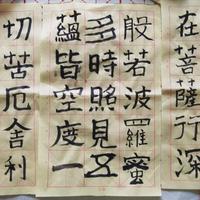 在菩薩行深
般若波羅蜜
多時照見五
蘊皆空度一
切苦厄舍利